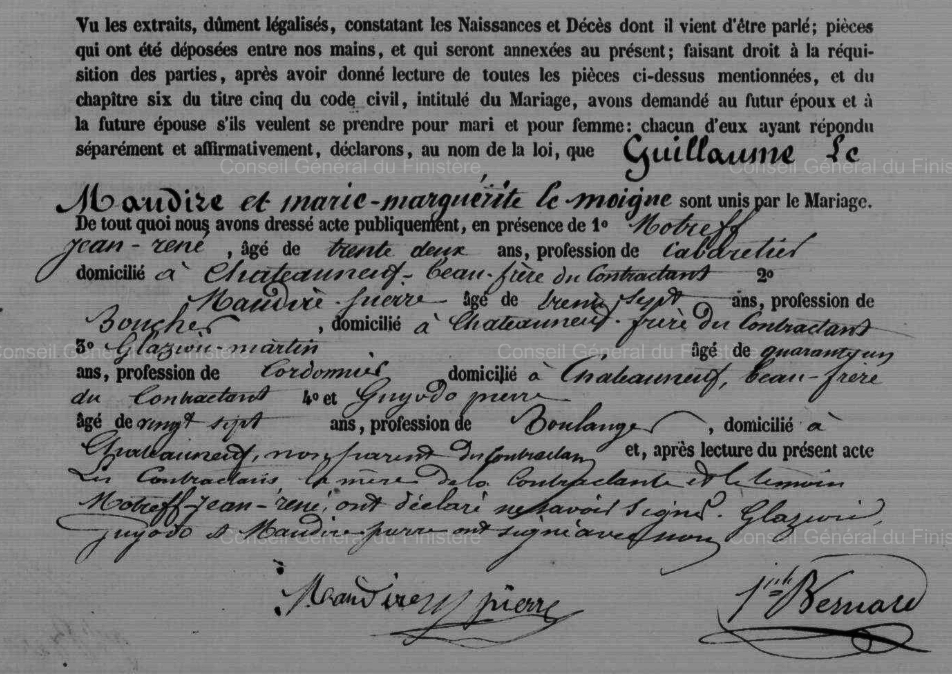 Vu les extraits, dûment légalisés, constatant les Naissances et Décès dont il vient d'être parlé; pièces
qui ont été déposées entre nos mains, et qui seront annexées au présent; faisant droit à la réqui-
sition des parties, après avoir donné lecture de toutes les pièces ci-dessus mentionnées, et du
chapître six du titre cinq du code civil, intitulé du Mariage, avons demandé au futur époux et à
la future épouse s'ils veulent se prendre pour mari et pour femme: chacun d'eux ayant répondu
séparément et affirmativement, déclarons, au nom de la loi, que Guillaume Le
Conseil Général du Finistère Conseil Général du Finistère
Maudire et marie-marguérite le moigne sont unis par le Mariage.
De tout quoi nous avons dressé acte publiquement, en présence de 1º Motreff
jean-rené, âgé de trente deux ans, profession de Cabaretier
domicilié à Chateauneuf- beau-frère du Contractant 2º
Maudire pierre âgé de trente sept ans, profession de
Boucher, domicilié à Chateauneuf- frère du Contractant
Conseil Général du Finistère Conseil Général du Finistère
3º Glaziou-martin âgé de quarante un
ans, profession de Cordonnier domicilié à Chateauneuf, beau-frère
du Contractant 4º et Guyodo pierre
âgé de vingt sept ans, profession de Boulanger, domicilié à
Chateauneuf, non parent du contractant et, après lecture du présent acte
Les Contractans la mère de la Contractante et le temoin
Motreff-jean-rené, ont déclaré ne savoir signer. Glaziou,
Guyodo et Maudire-pierre ont signé avec nous
Conseil Général du Finistère Conseil Général du Finis
Maudire pierre Bernard